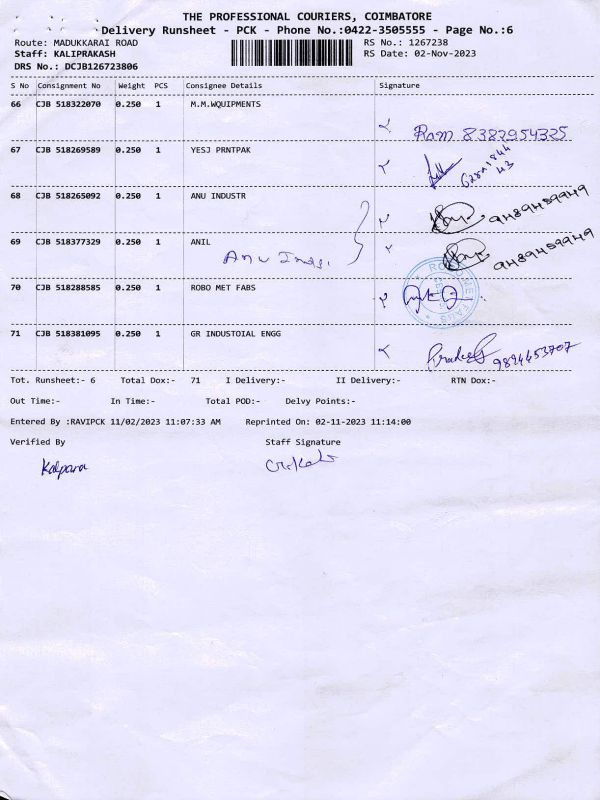 THE PROFESSIONAL COURIERS, COIMBATORE
Delivery Runsheet - PCK - Phone No.:0422-3505555 - Page No.:6
Route: MADUKKARAI ROAD RS No.: 1267238
Staff: KALIPRAKASH RS Date: 02-Nov-2023
DRS No.: DCJB126723806
S No Consignment No Weight PCS Consignee Details Signature
66 CJB 518322070 0.250 1 M.M.WQUIPMENTS
Ram 8382954325
67 CJB 518269589 0.250 1 YESJ PRNTPAK
68 CJB 518265092 0.250 1 ANU INDUSTR
9489459949
69 CJB 518377329 0.250 1 ANIL
Anu Inds. 9489459949
70 CJB 518288585 0.250 1 ROBO MET FABS
71 CJB 518381095 0.250 1 GR INDUSTOIAL ENGG
9894453707
Tot. Runsheet:- 6 Total Dox:- 71 I Delivery:- II Delivery:- RTN Dox:-
Out Time:- In Time:- Total POD:- Delvy Points:-
Entered By :RAVIPCK 11/02/2023 11:07:33 AM Reprinted On: 02-11-2023 11:14:00
Verified By Staff Signature
Kalpana